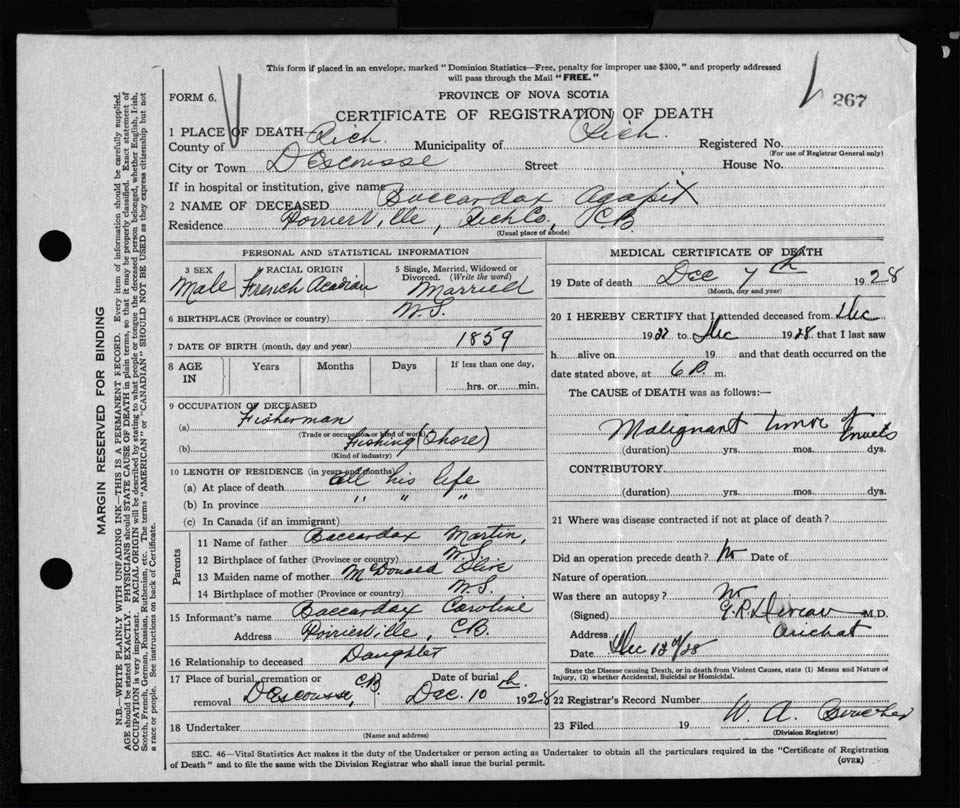 This form if placed in an envelope, marked "Dominion Statistics—Free, penalty for improper use $300," and properly addressed
will pass through the Mail "FREE."
FORM 6.
PROVINCE OF NOVA SCOTIA
267
CERTIFICATE OF REGISTRATION OF DEATH
1 PLACE OF DEATH
County of Rich. Municipality of Rich. Registered No.
(For use of Registrar General only)
City or Town D'Escousse Street House No.
If in hospital or institution, give name
2 NAME OF DECEASED Baccardax Agapit
Residence Poirierville, Rich Co, C.B.
(Usual place of abode)
PERSONAL AND STATISTICAL INFORMATION
3 SEX
Male
4 RACIAL ORIGIN
French Acadian
5 Single, Married, Widowed or
Divorced. (Write the word)
Married
6 BIRTHPLACE (Province or country) N.S.
7 DATE OF BIRTH (month, day and year) 1859
8 AGE IN Years Months Days If less than one day,
hrs. or min.
9 OCCUPATION OF DECEASED
(a) Fisherman
(Trade or occupation or kind of work)
(b) Fishing (Shore)
(Kind of industry)
10 LENGTH OF RESIDENCE (in years and months)
(a) At place of death all his life
(b) In province " " "
(c) In Canada (if an immigrant)
Parents
11 Name of father Baccardax Martin,
12 Birthplace of father (Province or country) N.S.
13 Maiden name of mother McDonald Olive
14 Birthplace of mother (Province or country) N.S.
15 Informant's name Baccardax Caroline
Address Poirierville, C.B.
16 Relationship to deceased Daughter
17 Place of burial, cremation or
removal D'Escousse, C.B.
Date of burial
Dec. 10 th 1928
18 Undertaker
(Name and address)
MEDICAL CERTIFICATE OF DEATH
19 Date of death Dec 7th 1928
(Month, day and year)
20 I HEREBY CERTIFY that I attended deceased from Dec
19 to Dec 1928 that I last saw
h alive on 19 and that death occurred on the
date stated above, at 6 P. m.
The CAUSE of DEATH was as follows:—
Malignant tumor of
(duration) yrs. mos. dys.
CONTRIBUTORY
(duration) yrs. mos. dys.
21 Where was disease contracted if not at place of death?
Did an operation precede death? No Date of
Nature of operation
Was there an autopsy? No
(Signed) M.D.
Address Arichat
Date Dec 12th/28
State the Disease causing Death, or in death from Violent Causes, state (1) Means and Nature of
Injury, (2) whether Accidental, Suicidal or Homicidal.
22 Registrar's Record Number
23 Filed 19 W. A.
(Division Registrar)
SEC. 46—Vital Statistics Act makes it the duty of the Undertaker or person acting as Undertaker to obtain all the particulars required in the "Certificate of Registration
of Death" and to file the same with the Division Registrar who shall issue the burial permit.
(OVER)
MARGIN RESERVED FOR BINDING
N.B.—WRITE PLAINLY WITH UNFADING INK—THIS IS A PERMANENT RECORD. Every item of information should be carefully supplied.
AGE should be stated EXACTLY. PHYSICIANS should STATE CAUSE OF DEATH in plain terms, so that it may be properly classified. Exact statement of
OCCUPATION is very important. RACIAL ORIGIN will be described by stating to what people or tongue the deceased person belonged, whether English, Irish,
Scotch, French, German, Russian, Ruthenian, etc. The terms "AMERICAN" or "CANADIAN" SHOULD NOT BE USED as they express citizenship but not
a race or people. See instructions on back of Certificate.